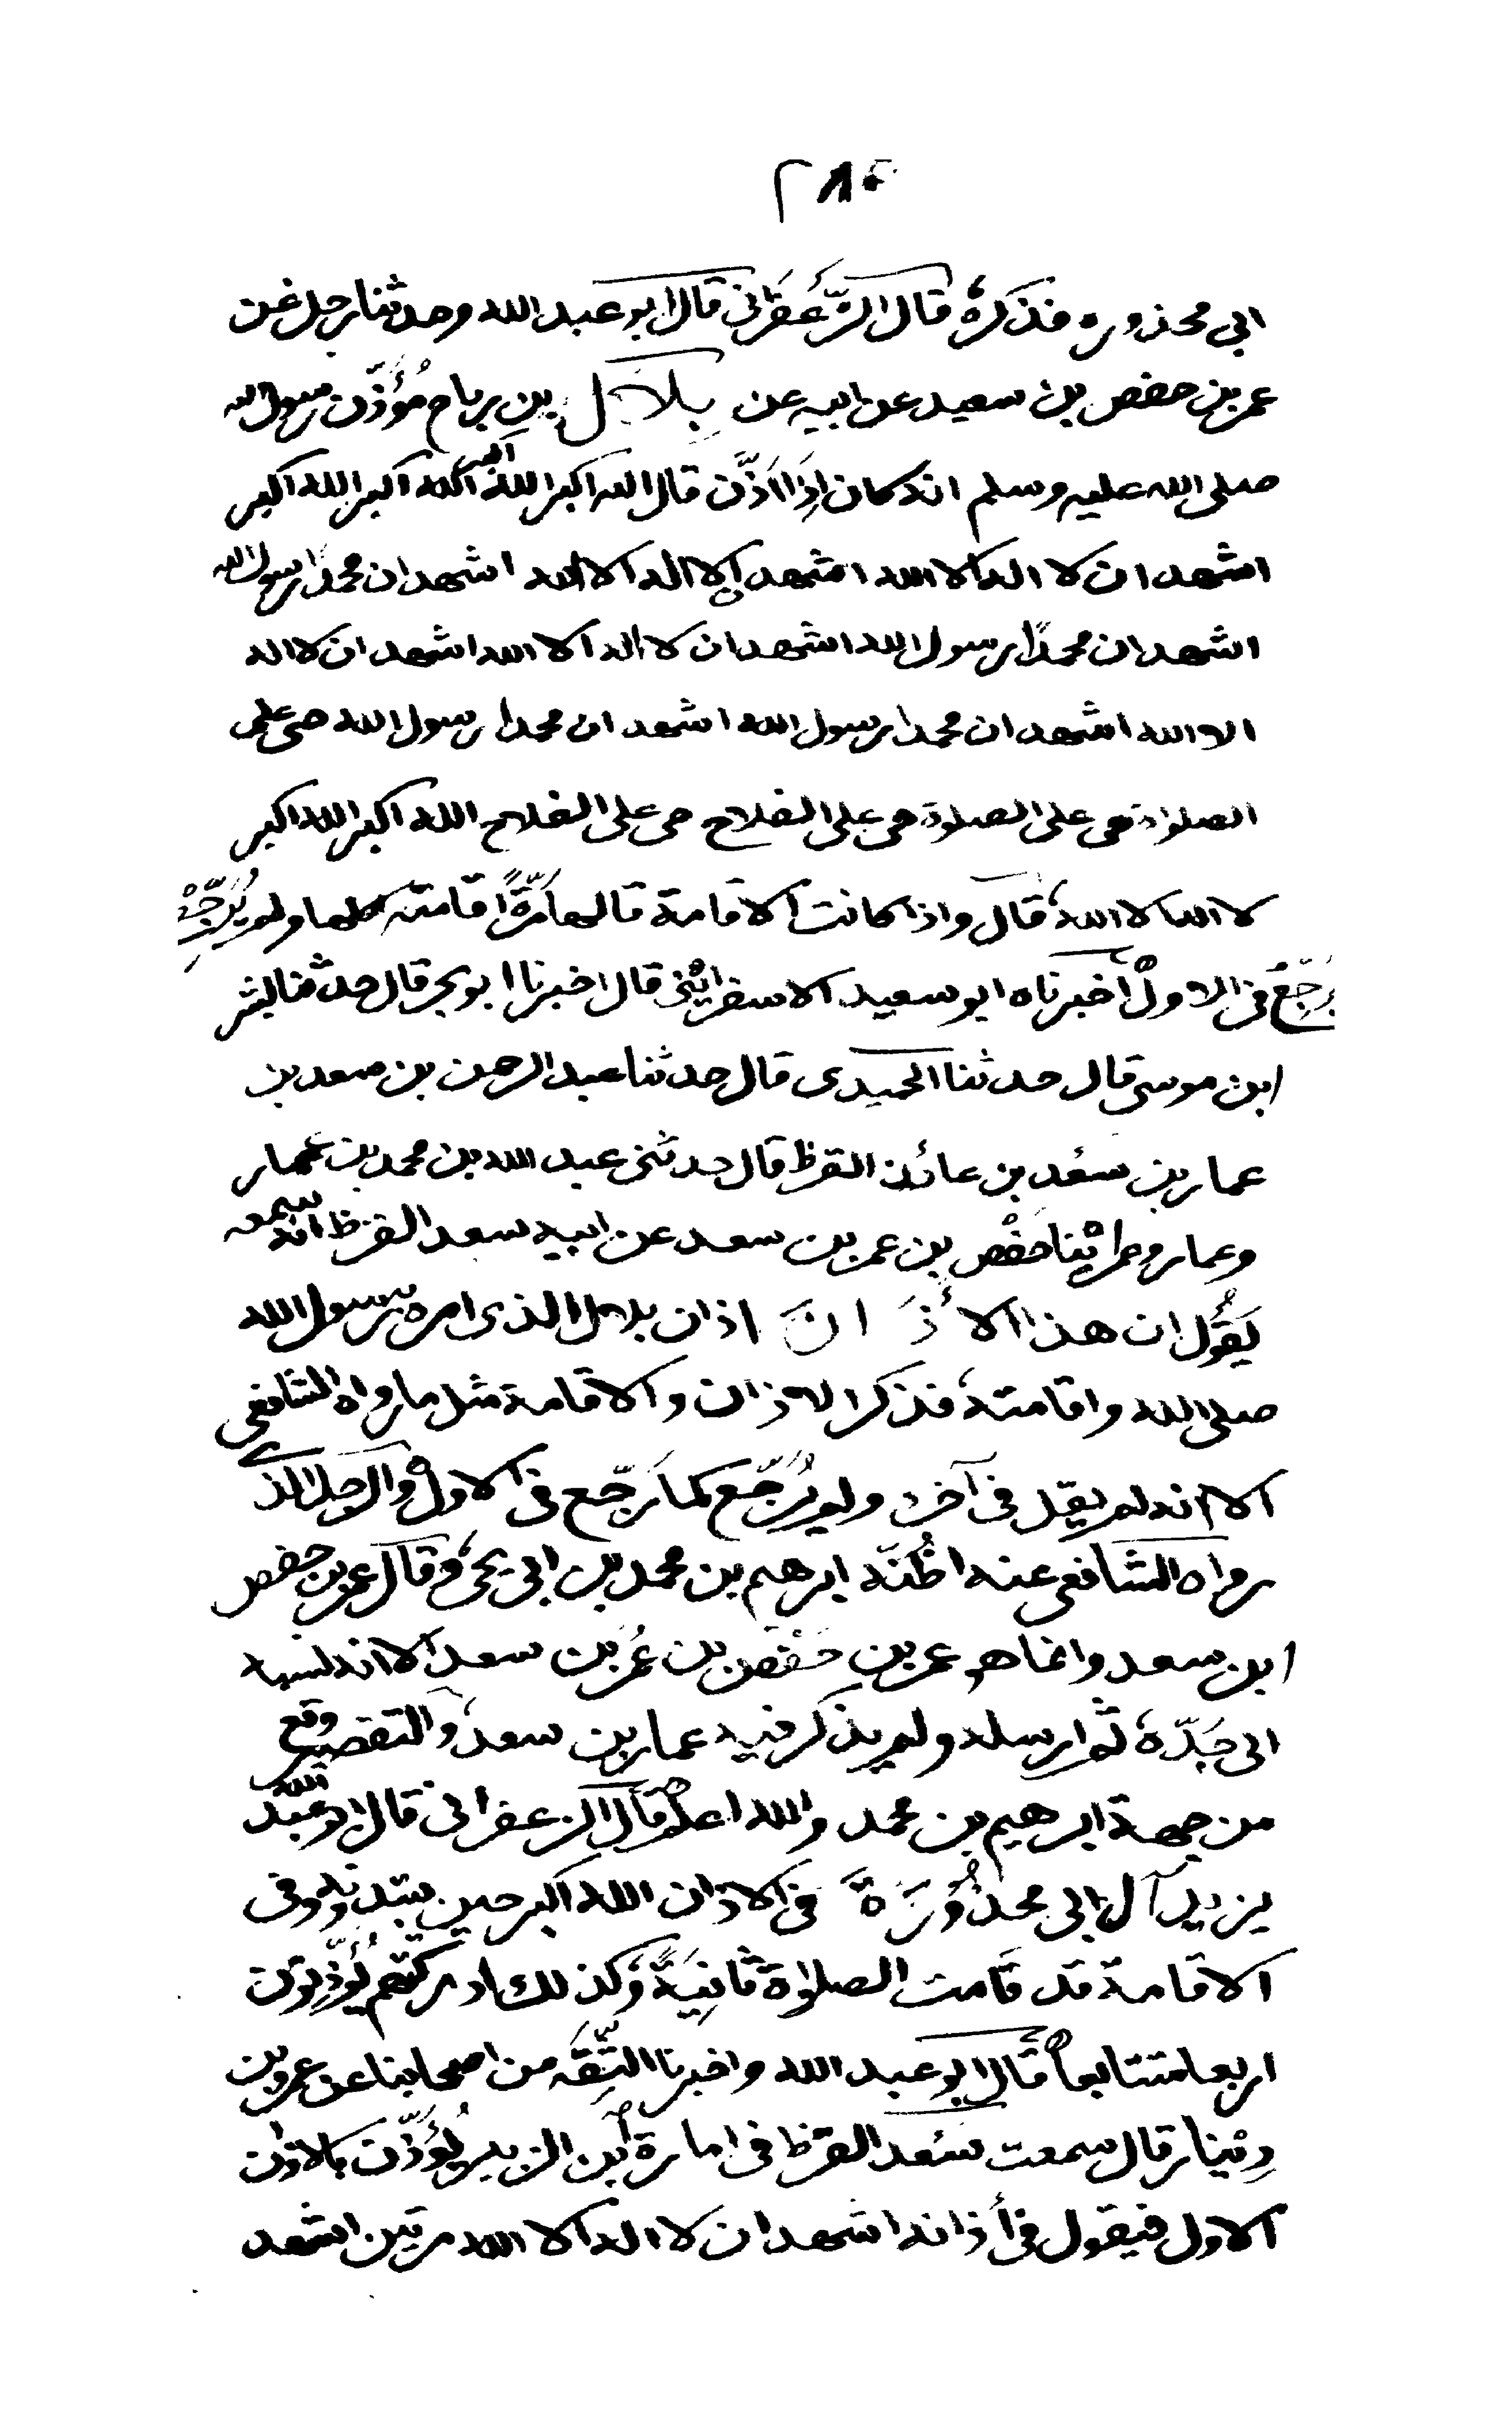 ٢٨٠
ابى محذوره فذكره قال الزَّعفَرانى قال ابو عبد الله وحدثنا رجل عن
عمر بن حفص بن سعيد عن ابيه عن بِلاَل بن رباح مُؤَذّن رسول الله
صلى الله عليه وسلم انه كان اِذَا اَذَّن قال الله اكبر الله اكبر الله اكبر الله اكبر
اشهد ان لا اله الا الله اشهد ان لا اله الا الله اشهد ان محمدًا رسول الله
اشهد ان محمدًا رسول الله اشهد ان لا اله الا الله اشهد ان لا اله
الا الله اشهد ان محمدا رسول الله اشهد ان محمدا رسول الله حى على
الصلواة حى على الصلوة حى على الفلاح حى على الفلاح الله اكبر الله اكبر
لا اله الا الله قال واذا كانت الاقامة قالها مَرّةً اقامته كلها ولم يُرَجِّعْ
يُرَجّع فى الاول اخبرناه ابو سعيد الاسفرائينى قال اخبرنا ابو بحر قال حدثنا بشر
ابن موسى قال حدثنا الحميدى قال حدثنا عبد الرحمن بن سعد بن
عمار بن سَعْد بن عائذ القرظ قال حدثنى عبد الله بن محمد بن عمار
وعمار وعمر ابْنا حَفْص بن عمر بن سعد عن ابيه سعد القرظ انه سمعه
يَقُول ان هذا الأذَانَ اذان بلال الذى امره رسول الله
صلى الله واقامته فذكر الاذان والاقامة مثل ما رواه الشافعى
الا انه لم يقل فى آخره ولم يُرَجّع كما رَجّع فى الاول والرجل الذى
رواه الشافعى عنه اظُنّه ابرهيم بن محمد بن ابى يحيى وقال عمر بن حفص
ابن سعد وانما هو عمر بن حَفْص بن عُمَر بن سعد الا انه نسبه
الى جَدّه ثم ارسله ولم يذكر فيه عمار بن سعد والتقصير وقع
من جهة ابرهيم بن محمد والله اعلم قال الزعفرانى قال ابو عبد الله
يزيد آل ابى محذُورَةَ فى الاذان الله اكبر حين يبتدونه وفى
الاقامة قد قَامت الصلواة ثَانِيَةً وكذلك ادركتهم يُؤَذّنون
اربعا متتابعاً قال ابو عبد الله واخبرنا الثِّقَه من اصحابنا عن عمرو بن
دِيْنار قال سمعت سَعْد القرظ فى امارة ابن الزبير يُؤَذّن بالاذان
الاول فيقول فى أذانه اشهد ان لا اله الا الله مرتين اشهد